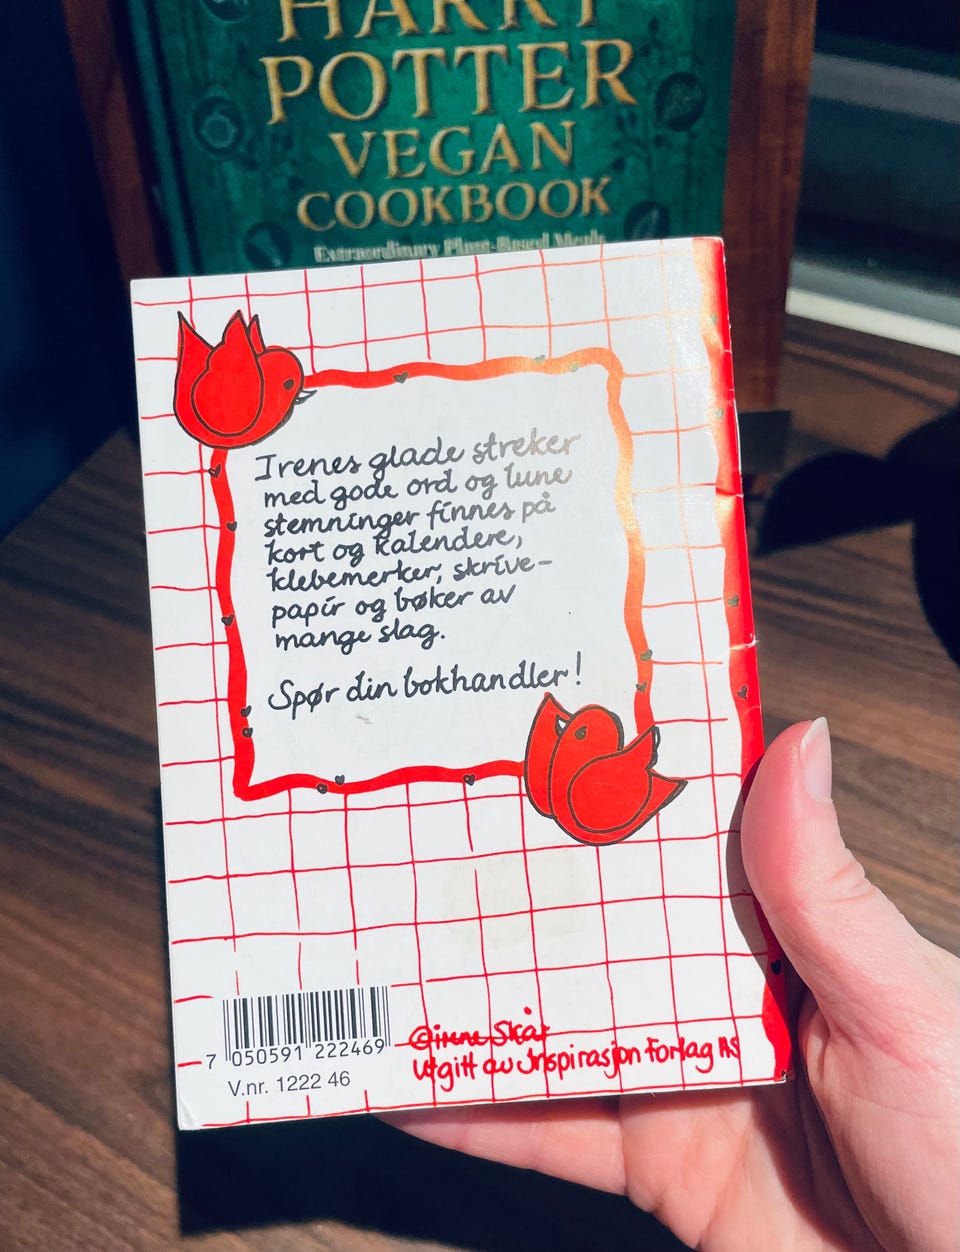 HARRY
POTTER
VEGAN
COOKBOOK
Extraordinary Plant-Based Meals
Irenes glade streker
med gode ord og lune
stemninger finnes på
kort og kalendere,
klebemerker, skrive-
papir og bøker av
mange slag.
Spør din bokhandler!
7 050591 222469
V.nr. 1222 46
©irene Skår
Utgitt av Inspirasjon Forlag AS